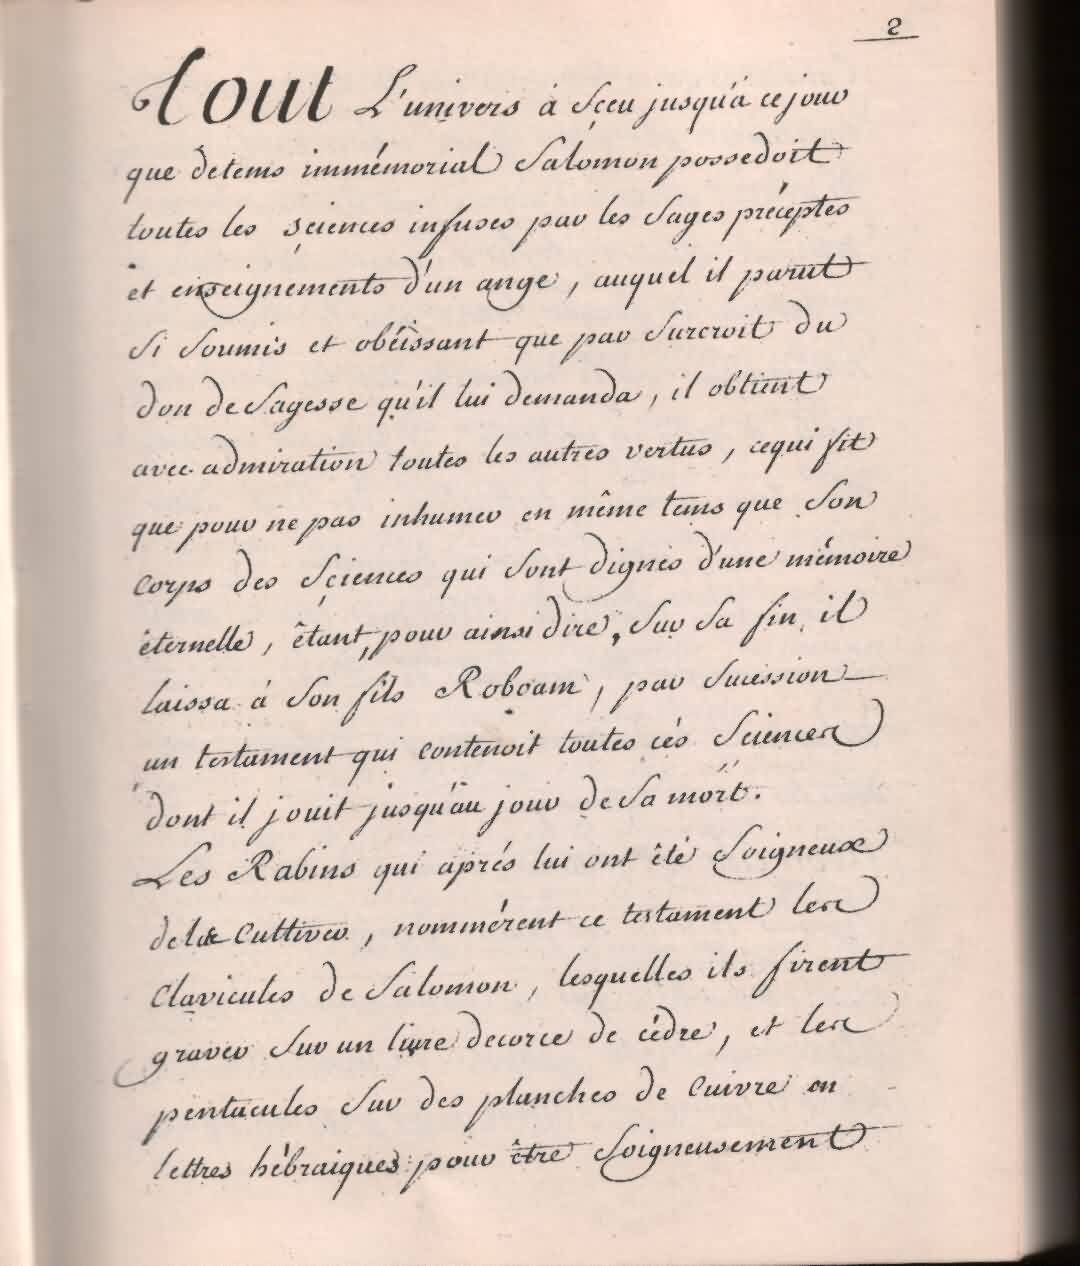 2
Tout L'univers à Sçeu jusqu'á ce jour
que dètems immémorial Salomon possedoit
toutes les sçiences infuses par les Sages préceptes
et enseignements d'un ange, auquel il parut
Si Soumis et obéissant que par Surcroit du
don de Sagesse qu'il lui demanda, il obtient
avec admiration toutes les autres vertus, cequi fit
que pour ne pas inhumer en même tems que Son
Corps des Sçiences qui sont dignes d'une mémoire
éternelle, êtant, pour ainsi dire, Sur Sa fin, il
laissa á Son fils Roboam, par Sucession
un testament qui contenoit toutes cés Sciences
dont il jouit jusqu'au jour de Sa mort.
Les Rabins qui aprés lui ont êté Soigneux
de le Cultiver, nommérent ce testament les
Clavicules de Salomon, lesquelles ils firent
graver Sur un livre decorce de cédre, et les
pentacules Sur des planches de Cuivre en
lettres hébraiques pour être Soigneusement